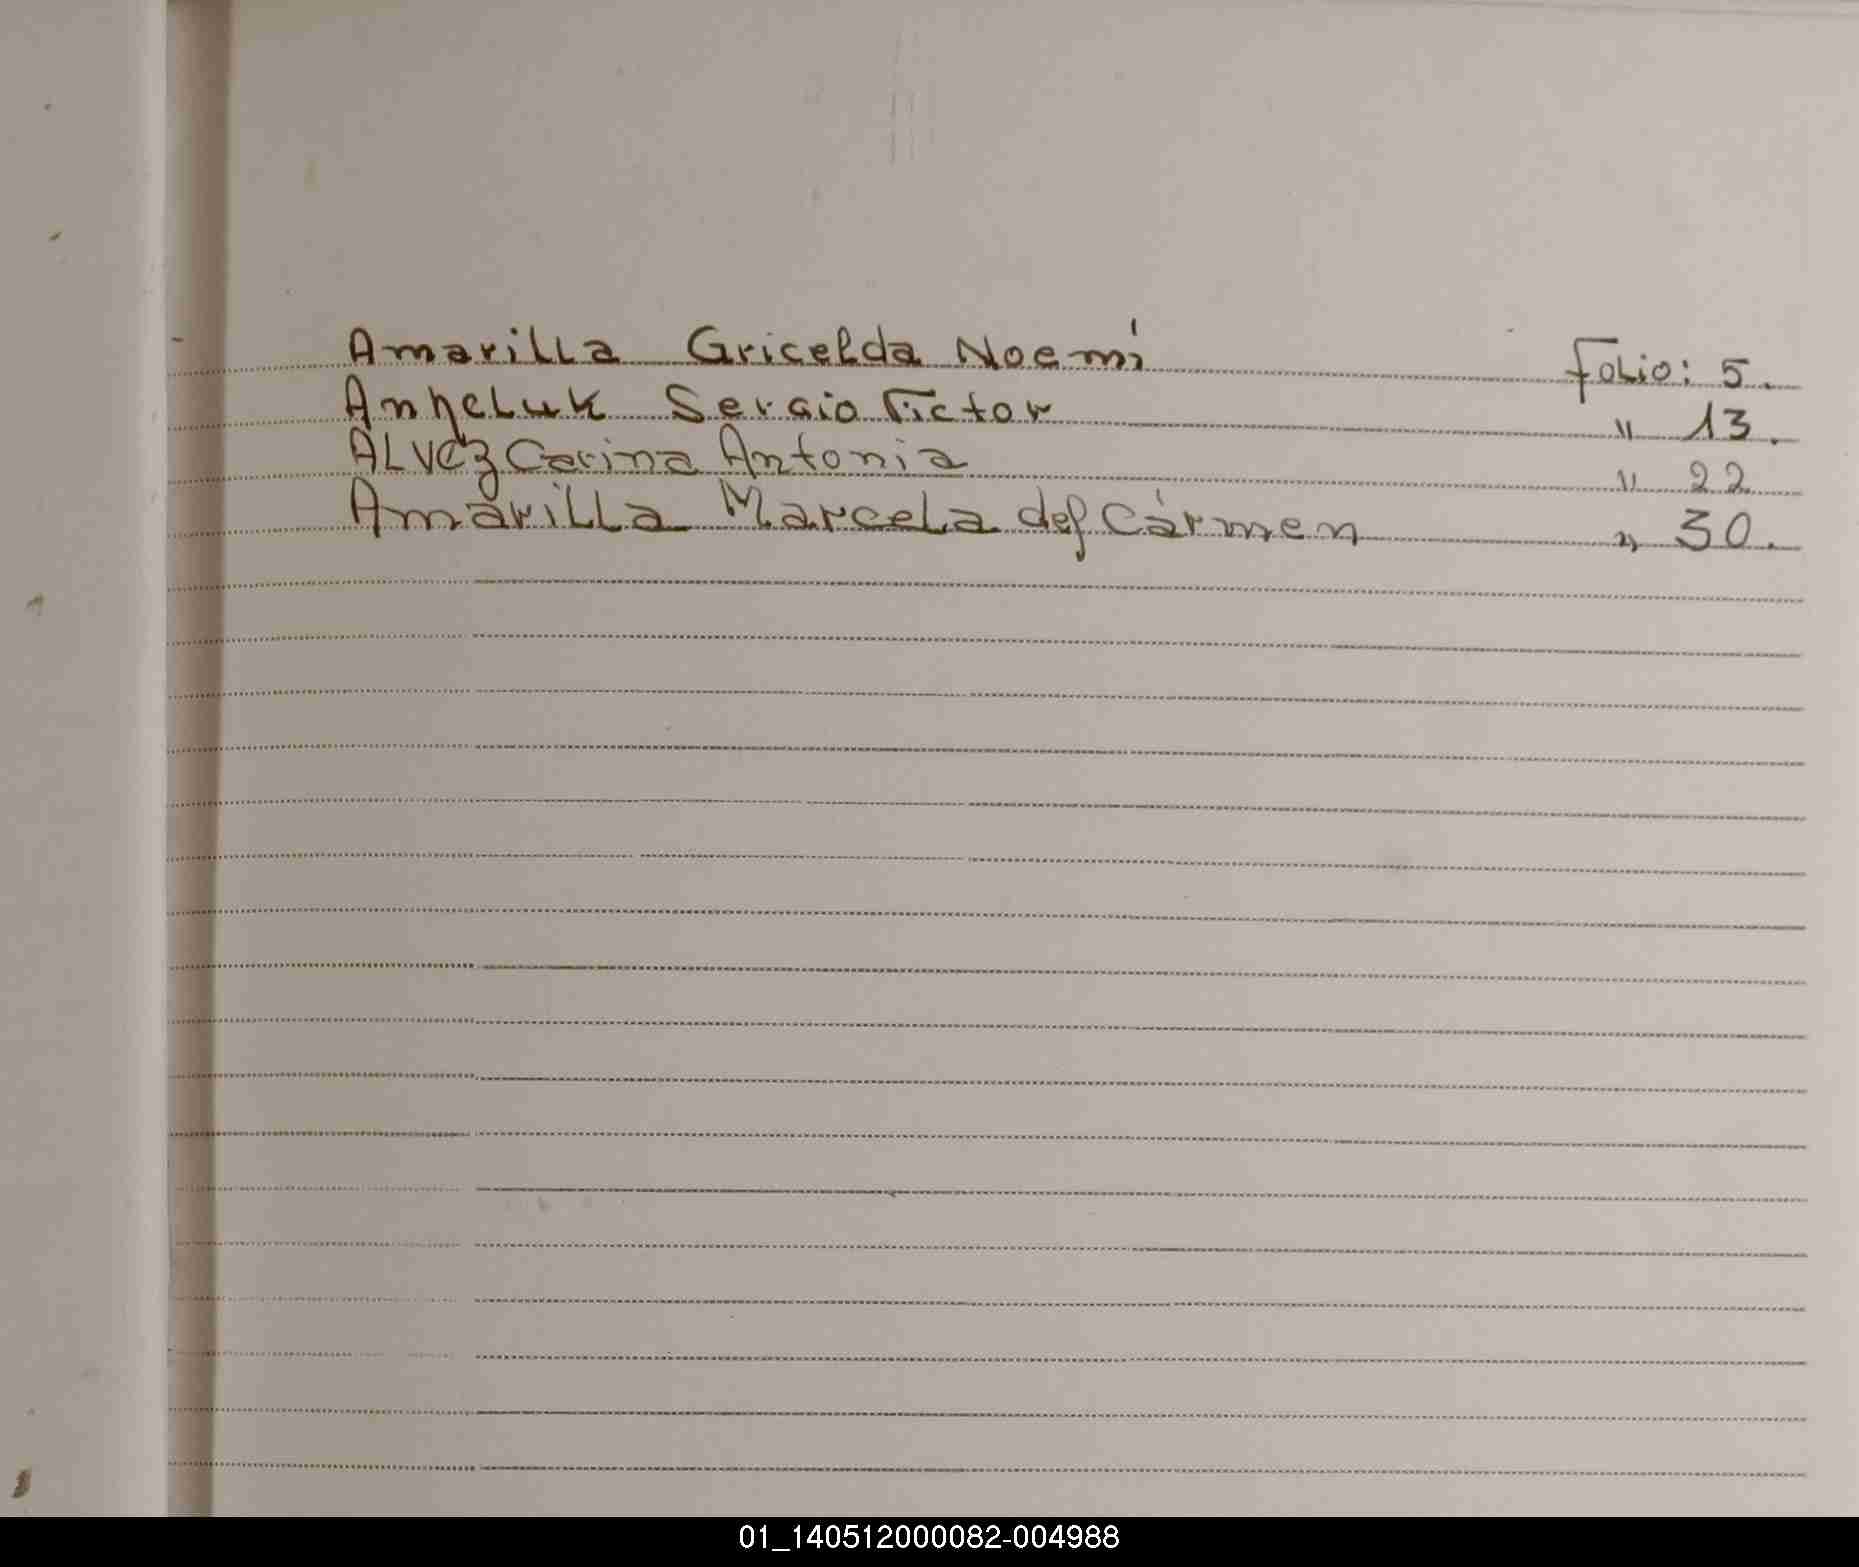 Amarilla Gricelda Noemí Folio: 5.
Anheluk Sergio Victor " 13.
ALVEZ Carina Antonia " 22
Amarilla Marcela del Cármen " 30.
01_140512000082-004988